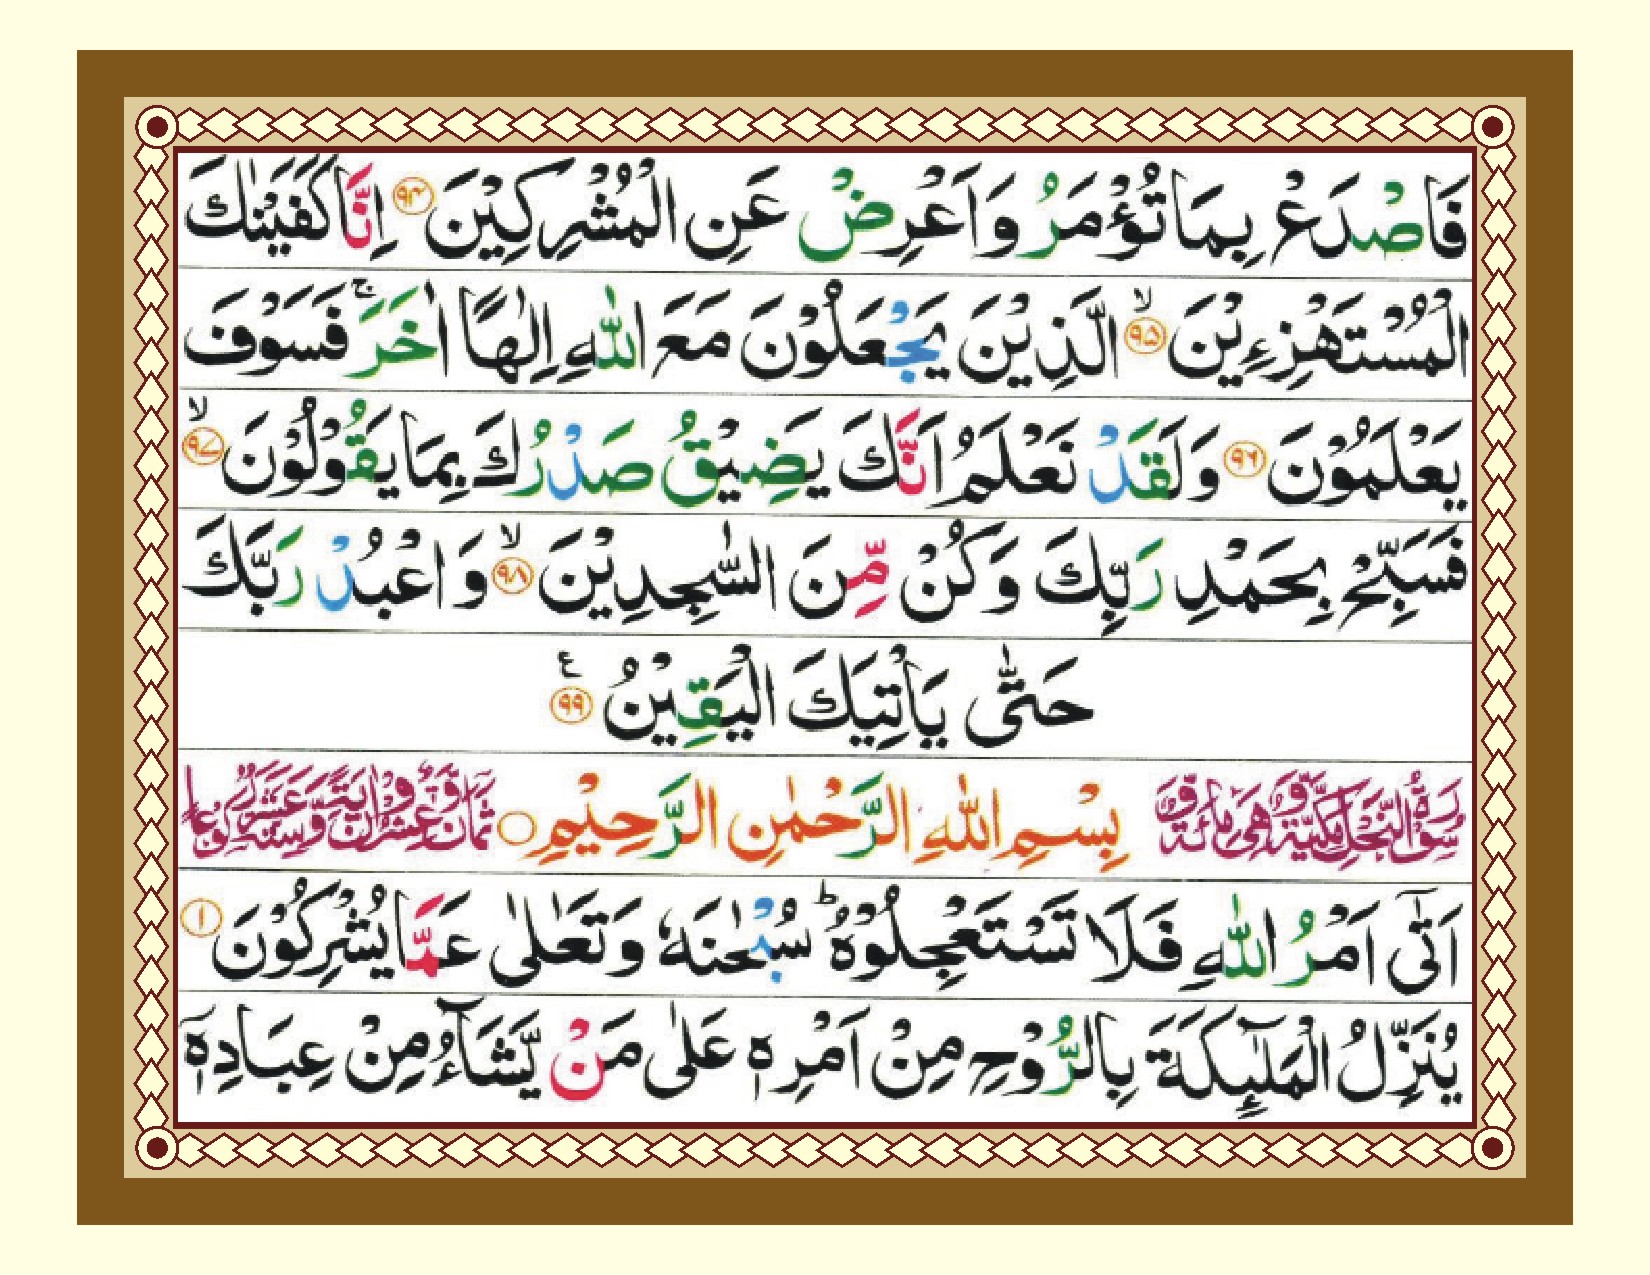 فَاصْدَعْ بِمَا تُؤْمَرُ وَاَعْرِضْ عَنِ الْمُشْرِكِيْنَ ۹۴ اِنَّا كَفَيْنٰكَ
الْمُسْتَهْزِءِيْنَ ۙ ۹۵ الَّذِيْنَ يَجْعَلُوْنَ مَعَ اللّٰهِ اِلٰهًا اٰخَرَ ۚ فَسَوْفَ
يَعْلَمُوْنَ ۹۶ وَلَقَدْ نَعْلَمُ اَنَّكَ يَضِيْقُ صَدْرُكَ بِمَا يَقُوْلُوْنَ ۙ ۹۷
فَسَبِّحْ بِحَمْدِ رَبِّكَ وَكُنْ مِّنَ السّٰجِدِيْنَ ۙ ۹۸ وَاعْبُدْ رَبَّكَ
حَتّٰى يَاْتِيَكَ الْيَقِيْنُ ع ۹۹
سُوْرَةُ النَّحْلِ مَكِّيَّةٌ وَّهِيَ مِائَةٌ وَّ بِسْمِ اللّٰهِ الرَّحْمٰنِ الرَّحِيْمِ ○ ثَمَانٌ وَّعِشْرُوْنَ اٰيَةً وَّسِتَّةَ عَشَرَ رُكُوْعًا
اَتٰٓى اَمْرُ اللّٰهِ فَلَا تَسْتَعْجِلُوْهُ ؕ سُبْحٰنَهٗ وَتَعٰلٰى عَمَّا يُشْرِكُوْنَ ۱
يُنَزِّلُ الْمَلٰٓئِكَةَ بِالرُّوْحِ مِنْ اَمْرِهٖ عَلٰى مَنْ يَّشَآءُ مِنْ عِبَادِهٖٓ